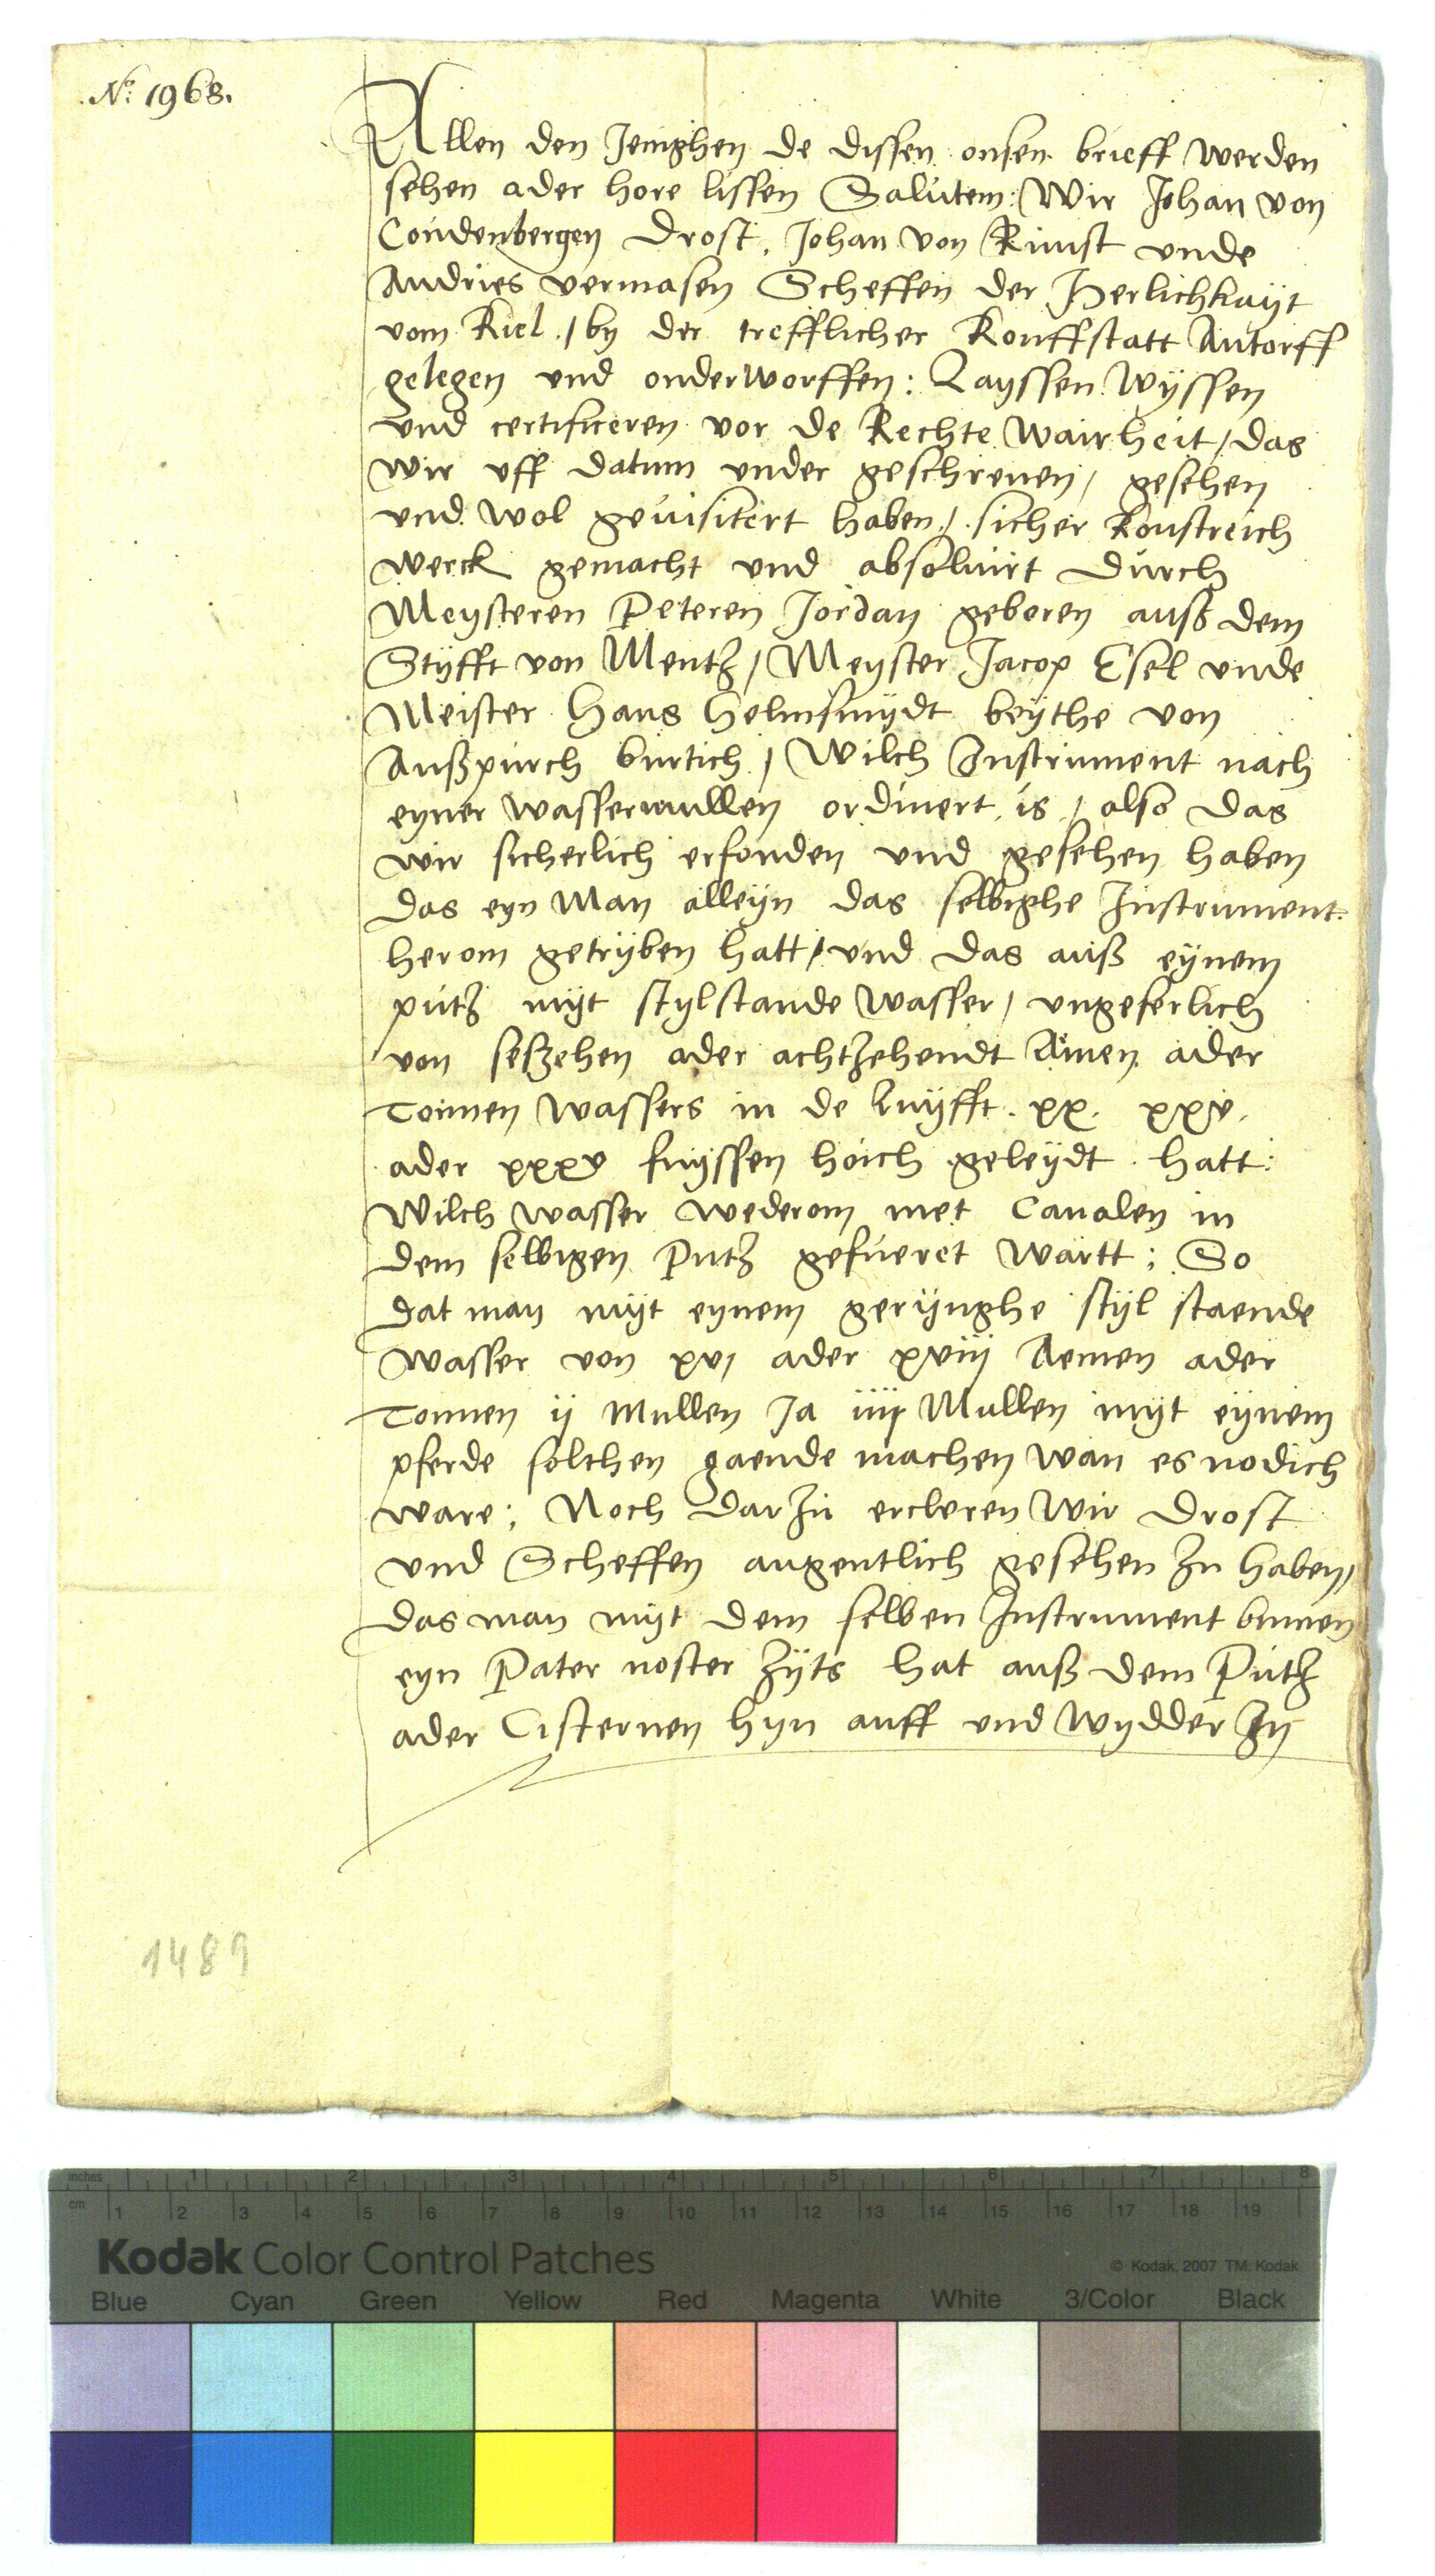 No: 1968.
Allen den Jenighen de dissen onsen brieff werden
sehen ader hore lissen Salutem: Wir Johan von
Coudenbergen Drost, Johan von Rimst unde
Andries vermasen Scheffen der Herlichkayt
vom Kiel / by der trefflicher Kouffstatt Antorff
gelegen und onderworffen: Layssen wyssen
und certificeren vor de Rechte wairheit / das
wir uff datum under geschreven / gesehen
und wol gevisitert haben / sicher Konstreich
werck gemacht und absolvirt durch
Meysteren Peteren Jordan geboren auß dem
Styfft von Mentz / Meyster Jacop Esel unde
Meister Hans Helmsmydt beythe von
Außpurch burtich / Wilch Instrument nach
eyner wassermullen ordinert is / also das
wir sicherlich erfonden und gesehen haben
das eyn Man alleyn das selbighe Instrument
herom getryben hatt / und das auß eynem
putz myt stylstande wasser / ungeferlich
von seßzehen ader achtzehendt Amen ader
Tonnen wassers in de Luyfft . xx. xxv.
ader xxxv fuyssen hoich geleydt hatt:
Wilch wasser wederom met Canalen in
dem selbigen Putz gefueret wartt; So
dat man myt eynem gerynghe styl staende
wasser von xvj ader xviij Aemen ader
Tonnen ij Mullen Ja iiij Mullen myt eynem
pferde solchen gaende machen wan es nodich
ware; Noch darzu ercleren wir Drost
und Scheffen augentlich gesehen zu haben /
das man myt dem selben Instrument bynnen
eyn Pater noster zyts hat auß dem Putz
ader Cisternen hyn auff und wydder In
1489
inches 1 2 3 4 5 6 7 8
cm 1 2 3 4 5 6 7 8 9 10 11 12 13 14 15 16 17 18 19
Kodak Color Control Patches © Kodak, 2007 TM: Kodak
Blue Cyan Green Yellow Red Magenta White 3/Color Black